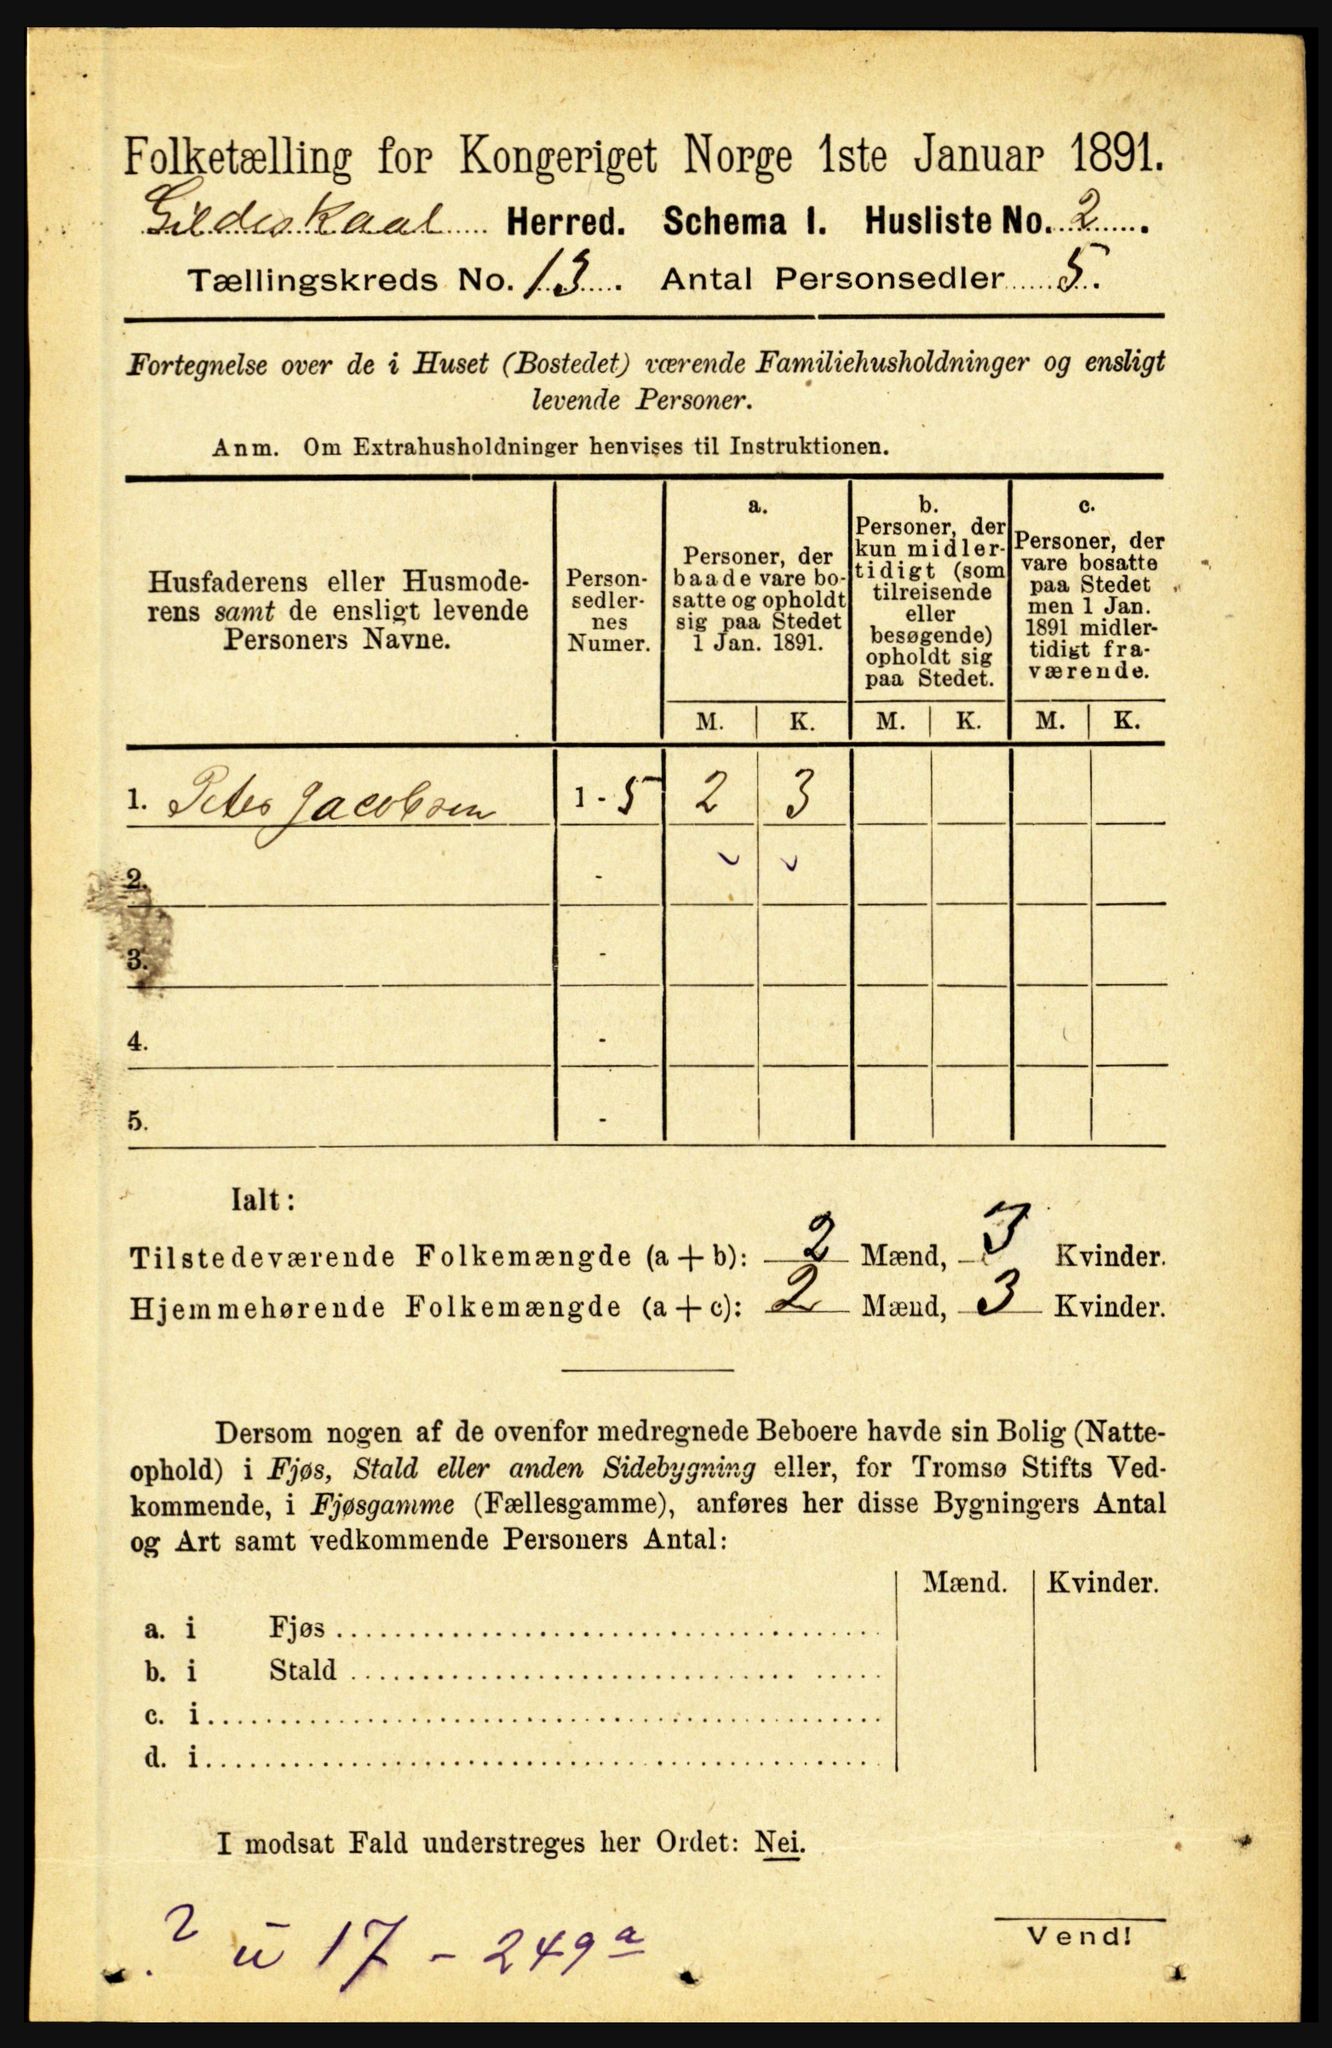 Folketælling for Kongeriget Norge 1ste Januar 1891.
Gildeskaal Herred. Schema I. Husliste No. 2
Tællingskreds No. 13. Antal Personsedler 5.
Fortegnelse over de i Huset (Bostedet) værende Familiehusholdninger og ensligt
levende Personer.
Anm. Om Extrahusholdninger henvises til Instruktionen.
Husfaderens eller Husmode-
rens samt de ensligt levende
Personers Navne.
Person-
sedler-
nes
Numer.
a.
Personer, der
baade vare bo-
satte og opholdt
sig paa Stedet
1 Jan. 1891.
b.
Personer, der
kun midler-
tidigt (som
tilreisende
eller
besøgende)
opholdt sig
paa Stedet.
c.
Personer, der
vare bosatte
paa Stedet
men 1 Jan.
1891 midler-
tidigt fra-
værende.
M. K. M. K. M. K.
1. Peter Jacobsen 1 - 5 2 3
2. -
3. -
4. -
5. -
Ialt:
Tilstedeværende Folkemængde (a + b): 2 Mænd, 3 Kvinder.
Hjemmehørende Folkemængde (a + c): 2 Mænd, 3 Kvinder.
Dersom nogen af de ovenfor medregnede Beboere havde sin Bolig (Natte-
ophold) i Fjøs, Stald eller anden Sidebygning eller, for Tromsø Stifts Ved-
kommende, i Fjøsgamme (Fællesgamme), anføres her disse Bygningers Antal
og Art samt vedkommende Personers Antal:
Mænd. Kvinder.
a. i Fjøs
b. i Stald
c. i
d. i
I modsat Fald understreges her Ordet: Nei.
? u 17 - 249a
Vend!